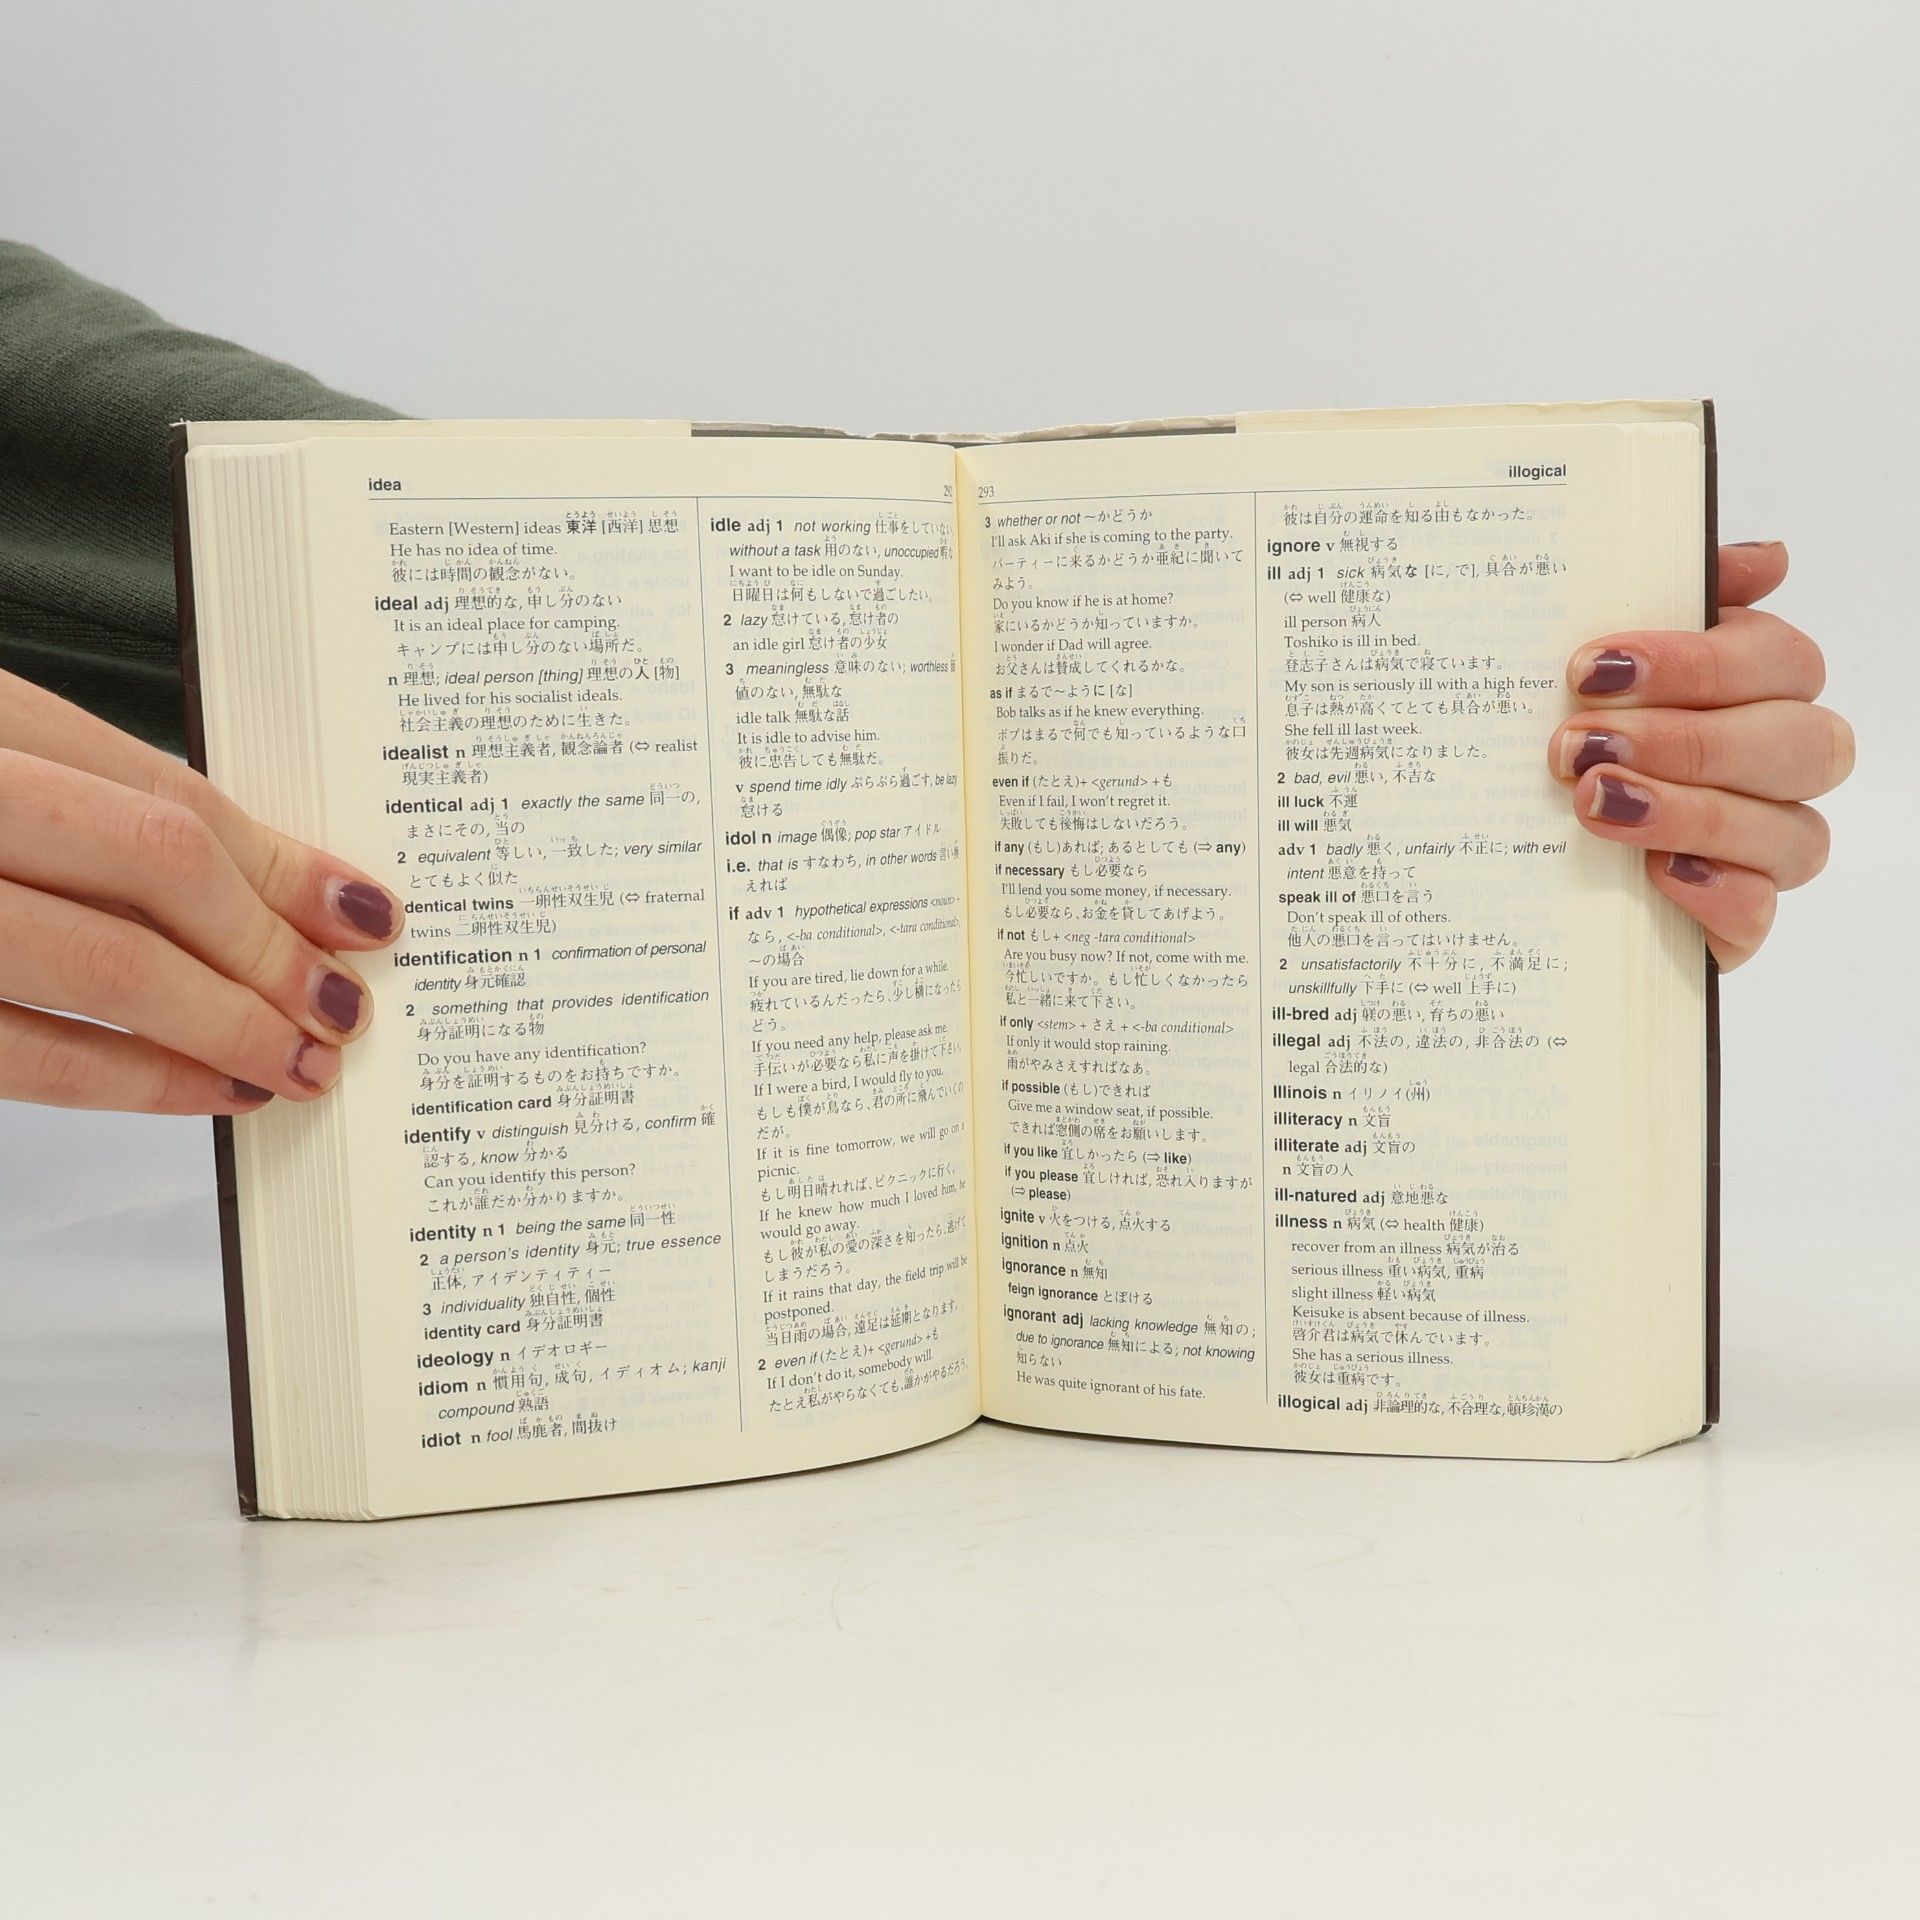 idea
292
Eastern [Western] ideas 東洋 [西洋] 思想
He has no idea of time.
彼には時間の観念がない。
ideal adj 理想的な, 申し分のない
It is an ideal place for camping.
キャンプには申し分のない場所だ。
n 理想; ideal person [thing] 理想の人 [物]
He lived for his socialist ideals.
社会主義の理想のために生きた。
idealist n 理想主義者, 観念論者 (⇔ realist
現実主義者)
identical adj 1 exactly the same 同一の,
まさにその, 当の
2 equivalent 等しい, 一致した; very similar
とてもよく似た
dentical twins 一卵性双生児 (⇔ fraternal
twins 二卵性双生児)
identification n 1 confirmation of personal
identity 身元確認
2 something that provides identification
身分証明になる物
Do you have any identification?
身分を証明するものをお持ちですか。
identification card 身分証明書
identify v distinguish 見分ける, confirm 確
認する, know 分かる
Can you identify this person?
これが誰だか分かりますか。
identity n 1 being the same 同一性
2 a person's identity 身元; true essence
正体, アイデンティティー
3 individuality 独自性, 個性
identity card 身分証明書
ideology n イデオロギー
idiom n 慣用句, 成句, イディオム; kanji
compound 熟語
idiot n fool 馬鹿者, 間抜け
idle adj 1 not working 仕事をしていない,
without a task 用のない, unoccupied 暇な
I want to be idle on Sunday.
日曜日は何もしないで過ごしたい。
2 lazy 怠けている, 怠け者の
an idle girl 怠け者の少女
3 meaningless 意味のない; worthless 価
値のない, 無駄な
idle talk 無駄な話
It is idle to advise him.
彼に忠告しても無駄だ。
v spend time idly ぶらぶら過ごす, be lazy
怠ける
idol n image 偶像; pop star アイドル
i.e. that is すなわち, in other words 言い換
えれば
if adv 1 hypothetical expressions <noun> +
なら, <-ba conditional>, <-tara conditional>,
〜の場合
If you are tired, lie down for a while.
疲れているんだったら、少し横になったら
どう。
If you need any help, please ask me.
手伝いが必要なら私に声を掛けて下さい。
If I were a bird, I would fly to you.
もしも僕が鳥なら、君の所に飛んでいくの
だが。
If it is fine tomorrow, we will go on a
picnic.
もし明日晴れれば、ピクニックに行く。
If he knew how much I loved him, he
would go away.
もし彼が私の愛の深さを知ったら、逃げて
しまうだろう。
If it rains that day, the field trip will be
postponed.
当日雨の場合, 遠足は延期となります。
2 even if (たとえ)+ <gerund> +も
If I don't do it, somebody will.
たとえ私がやらなくても、誰かがやるだろう。
293
illogical
3 whether or not 〜かどうか
I'll ask Aki if she is coming to the party.
パーティーに来るかどうか亜紀に聞いて
みよう。
Do you know if he is at home?
家にいるかどうか知っていますか。
I wonder if Dad will agree.
お父さんは賛成してくれるかな。
as if まるで〜ように [な]
Bob talks as if he knew everything.
ボブはまるで何でも知っているような口
振りだ。
even if (たとえ)+ <gerund> +も
Even if I fail, I won't regret it.
失敗しても後悔はしないだろう。
if any (もし)あれば; あるとしても (⇒ any)
if necessary もし必要なら
I'll lend you some money, if necessary.
もし必要なら、お金を貸してあげよう。
if not もし+ <neg -tara conditional>
Are you busy now? If not, come with me.
今忙しいですか。もし忙しくなかったら
私と一緒に来て下さい。
if only <stem> + さえ + <-ba conditional>
If only it would stop raining.
雨がやみさえすればなあ。
if possible (もし)できれば
Give me a window seat, if possible.
できれば窓側の席をお願いします。
if you like 宜しかったら (⇒ like)
if you please 宜しければ, 恐れ入りますが
(⇒ please)
ignite v 火をつける, 点火する
ignition n 点火
ignorance n 無知
feign ignorance とぼける
ignorant adj lacking knowledge 無知の;
due to ignorance 無知による; not knowing
知らない
He was quite ignorant of his fate.
彼は自分の運命を知る由もなかった。
ignore v 無視する
ill adj 1 sick 病気な [に, で], 具合が悪い
(⇔ well 健康な)
ill person 病人
Toshiko is ill in bed.
登志子さんは病気で寝ています。
My son is seriously ill with a high fever.
息子は熱が高くてとても具合が悪い。
She fell ill last week.
彼女は先週病気になりました。
2 bad, evil 悪い, 不吉な
ill luck 不運
ill will 悪気
adv 1 badly 悪く, unfairly 不正に; with evil
intent 悪意を持って
speak ill of 悪口を言う
Don't speak ill of others.
他人の悪口を言ってはいけません。
2 unsatisfactorily 不十分に, 不満足に;
unskillfully 下手に (⇔ well 上手に)
ill-bred adj 躾の悪い, 育ちの悪い
illegal adj 不法の, 違法の, 非合法の (⇔
legal 合法的な)
Illinois n イリノイ(州)
illiteracy n 文盲
illiterate adj 文盲の
n 文盲の人
ill-natured adj 意地悪な
illness n 病気 (⇔ health 健康)
recover from an illness 病気が治る
serious illness 重い病気, 重病
slight illness 軽い病気
Keisuke is absent because of illness.
啓介君は病気で休んでいます。
She has a serious illness.
彼女は重病です。
illogical adj 非論理的な, 不合理な, 頓珍漢の